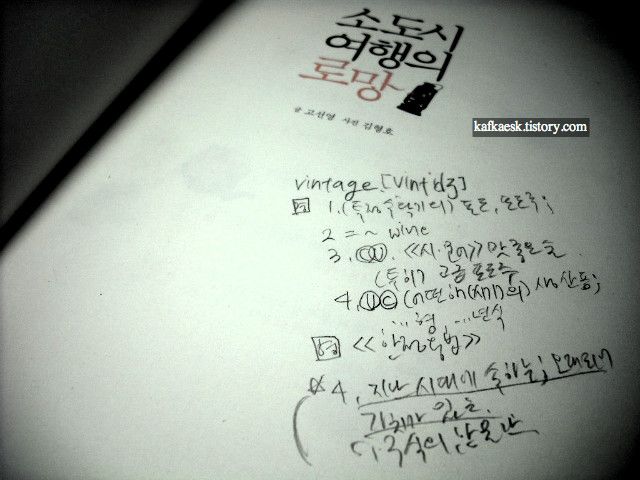 소도시
여행의
로망
글 고선영 사진 김형호
kafkaesk.tistory.com
vintage [vintidʒ]
명 1. (특정수확기의) 포도, 포도주;
2 = ~ wine
3. Ⓤ. <<시·문어>> 맛좋은 술.
(특히) 고급 포도주
4. ⓊⒸ (어떤 해(시기)의) 생산품;
...형, ...년식
형 <<한정용법>>
4. 지난 시대에 속하는; 오래되어
가치가 있는.